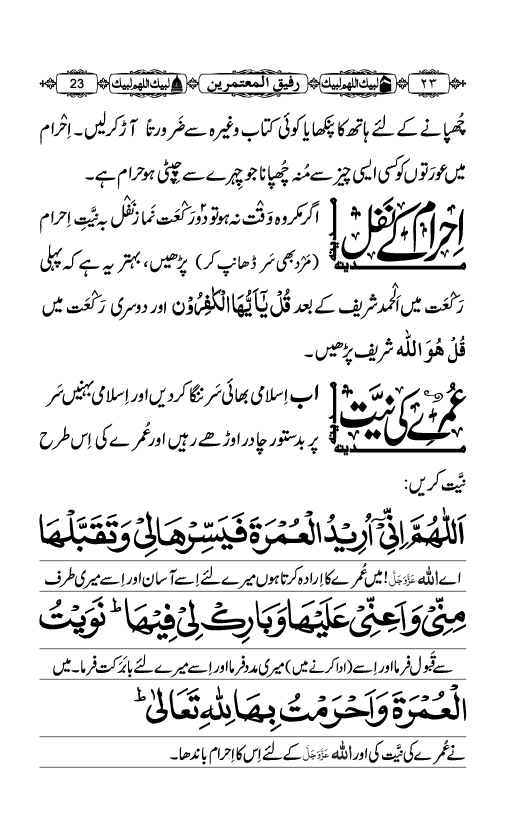 ۲۳ لبیك اللهم لبیك رفیق المعتمرین لبیك اللهم لبیك 23
چُھپانے کے لئے ہاتھ کا پنکھا یا کوئی کتاب وغیرہ سے ضَرورتاً آڑ کرلیں۔ اِحْرام
میں عورَتوں کو کسی ایسی چیز سے مُنہ چُھپانا جو چِہرے سے چِپٹی ہو حرام ہے۔
اِحرام کے نَفل اگر مکروہ وَقْت نہ ہو تو دو۲ رَکْعَت نمازِ نَفْل بہ نیّتِ اِحرام
مدینہ مدینہ (مَرْد بھی سَر ڈھانپ کر) پڑھیں، بہتر یہ ہے کہ پہلی
رَکْعَت میں اَلْحمد شریف کے بعد قُلْ یٰۤاَیُّهَا الْكٰفِرُوْن اور دوسری رَکْعَت میں
قُلْ هُوَ اللّٰه شریف پڑھیں۔
عُمرے کی نیَّت اب اِسلامی بھائی سَر ننگا کردیں اور اِسلامی بہنیں سَر
مدینہ مدینہ پر بدستور چادر اوڑھے رہیں اور عُمرے کی اِس طرح
نیَّت کریں:
اَللّٰهُمَّ اِنِّیْۤ اُرِیْدُ الْعُمْرَةَ فَیَسِّرْهَا لِیْ وَتَقَبَّلْهَا
اے اللّٰه عَزَّوَجَلَّ! میں عُمرے کا اِرادہ کرتا ہوں میرے لئے اِسے آسان اور اِسے میری طرف
مِنِّیْ وَاَعِنِّیْ عَلَیْهَا وَبَارِكْ لِیْ فِیْهَا ؕ نَوَیْتُ
سے قَبول فرما اور اِسے (ادا کرنے میں) میری مدد فرما اور اِسے میرے لئے بابَرَکت فرما۔ میں
الْعُمْرَةَ وَاَحْرَمْتُ بِهَا لِلّٰهِ تَعَالٰی ؕ
نے عُمرے کی نیَّت کی اور اللّٰه عَزَّوَجَلَّ کے لئے اِس کا اِحرام باندھا۔